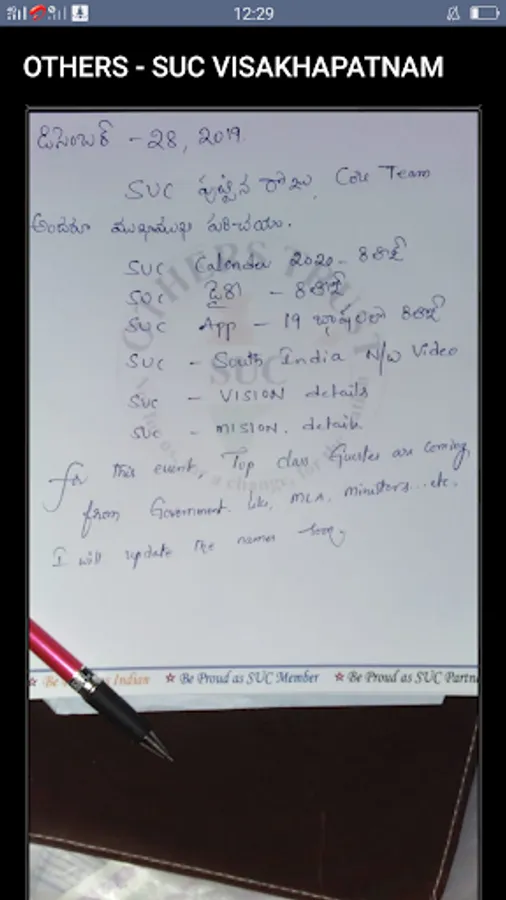 12:29
OTHERS - SUC VISAKHAPATNAM
డిసెంబర్ - 28, 2019
SUC పుట్టిన రోజు, Core Team
అందరూ ముఖాముఖి పరిచయం.
SUC Calender 2020 - రిలీజ్
SUC డైరీ - రిలీజ్
SUC App - 19 భాషలలో రిలీజ్
SUC - South India N/W Video
SUC - VISION details
SUC - MISION. details
For this event, Top class Guestes are coming
from Government. Like, MLA, ministers...etc.
I will update the names soon.
OTHERS TRUST
SUC
Indian ★ Be Proud as SUC Member ★ Be Proud as SUC Partne